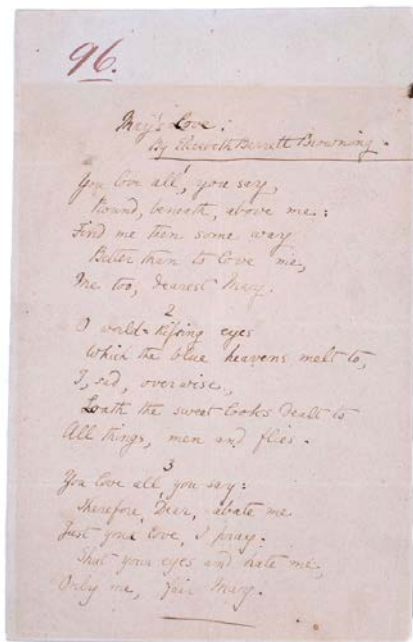 96.
May's Love.
By Elizabeth Barrett Browning.
You love all, you say,
Round, beneath, above me:
Find me then some way
Better than to love me,
Me too, dearest May.
2
O world-kissing eyes
Which the blue heavens melt to,
I, sad, overwise,
Loath the sweet looks dealt to
All things, men and flies.
3
You love all you say:
Therefore, Dear, abate me
Just your love, I pray.
Shut your eyes and hate me,
Only me, fair May.